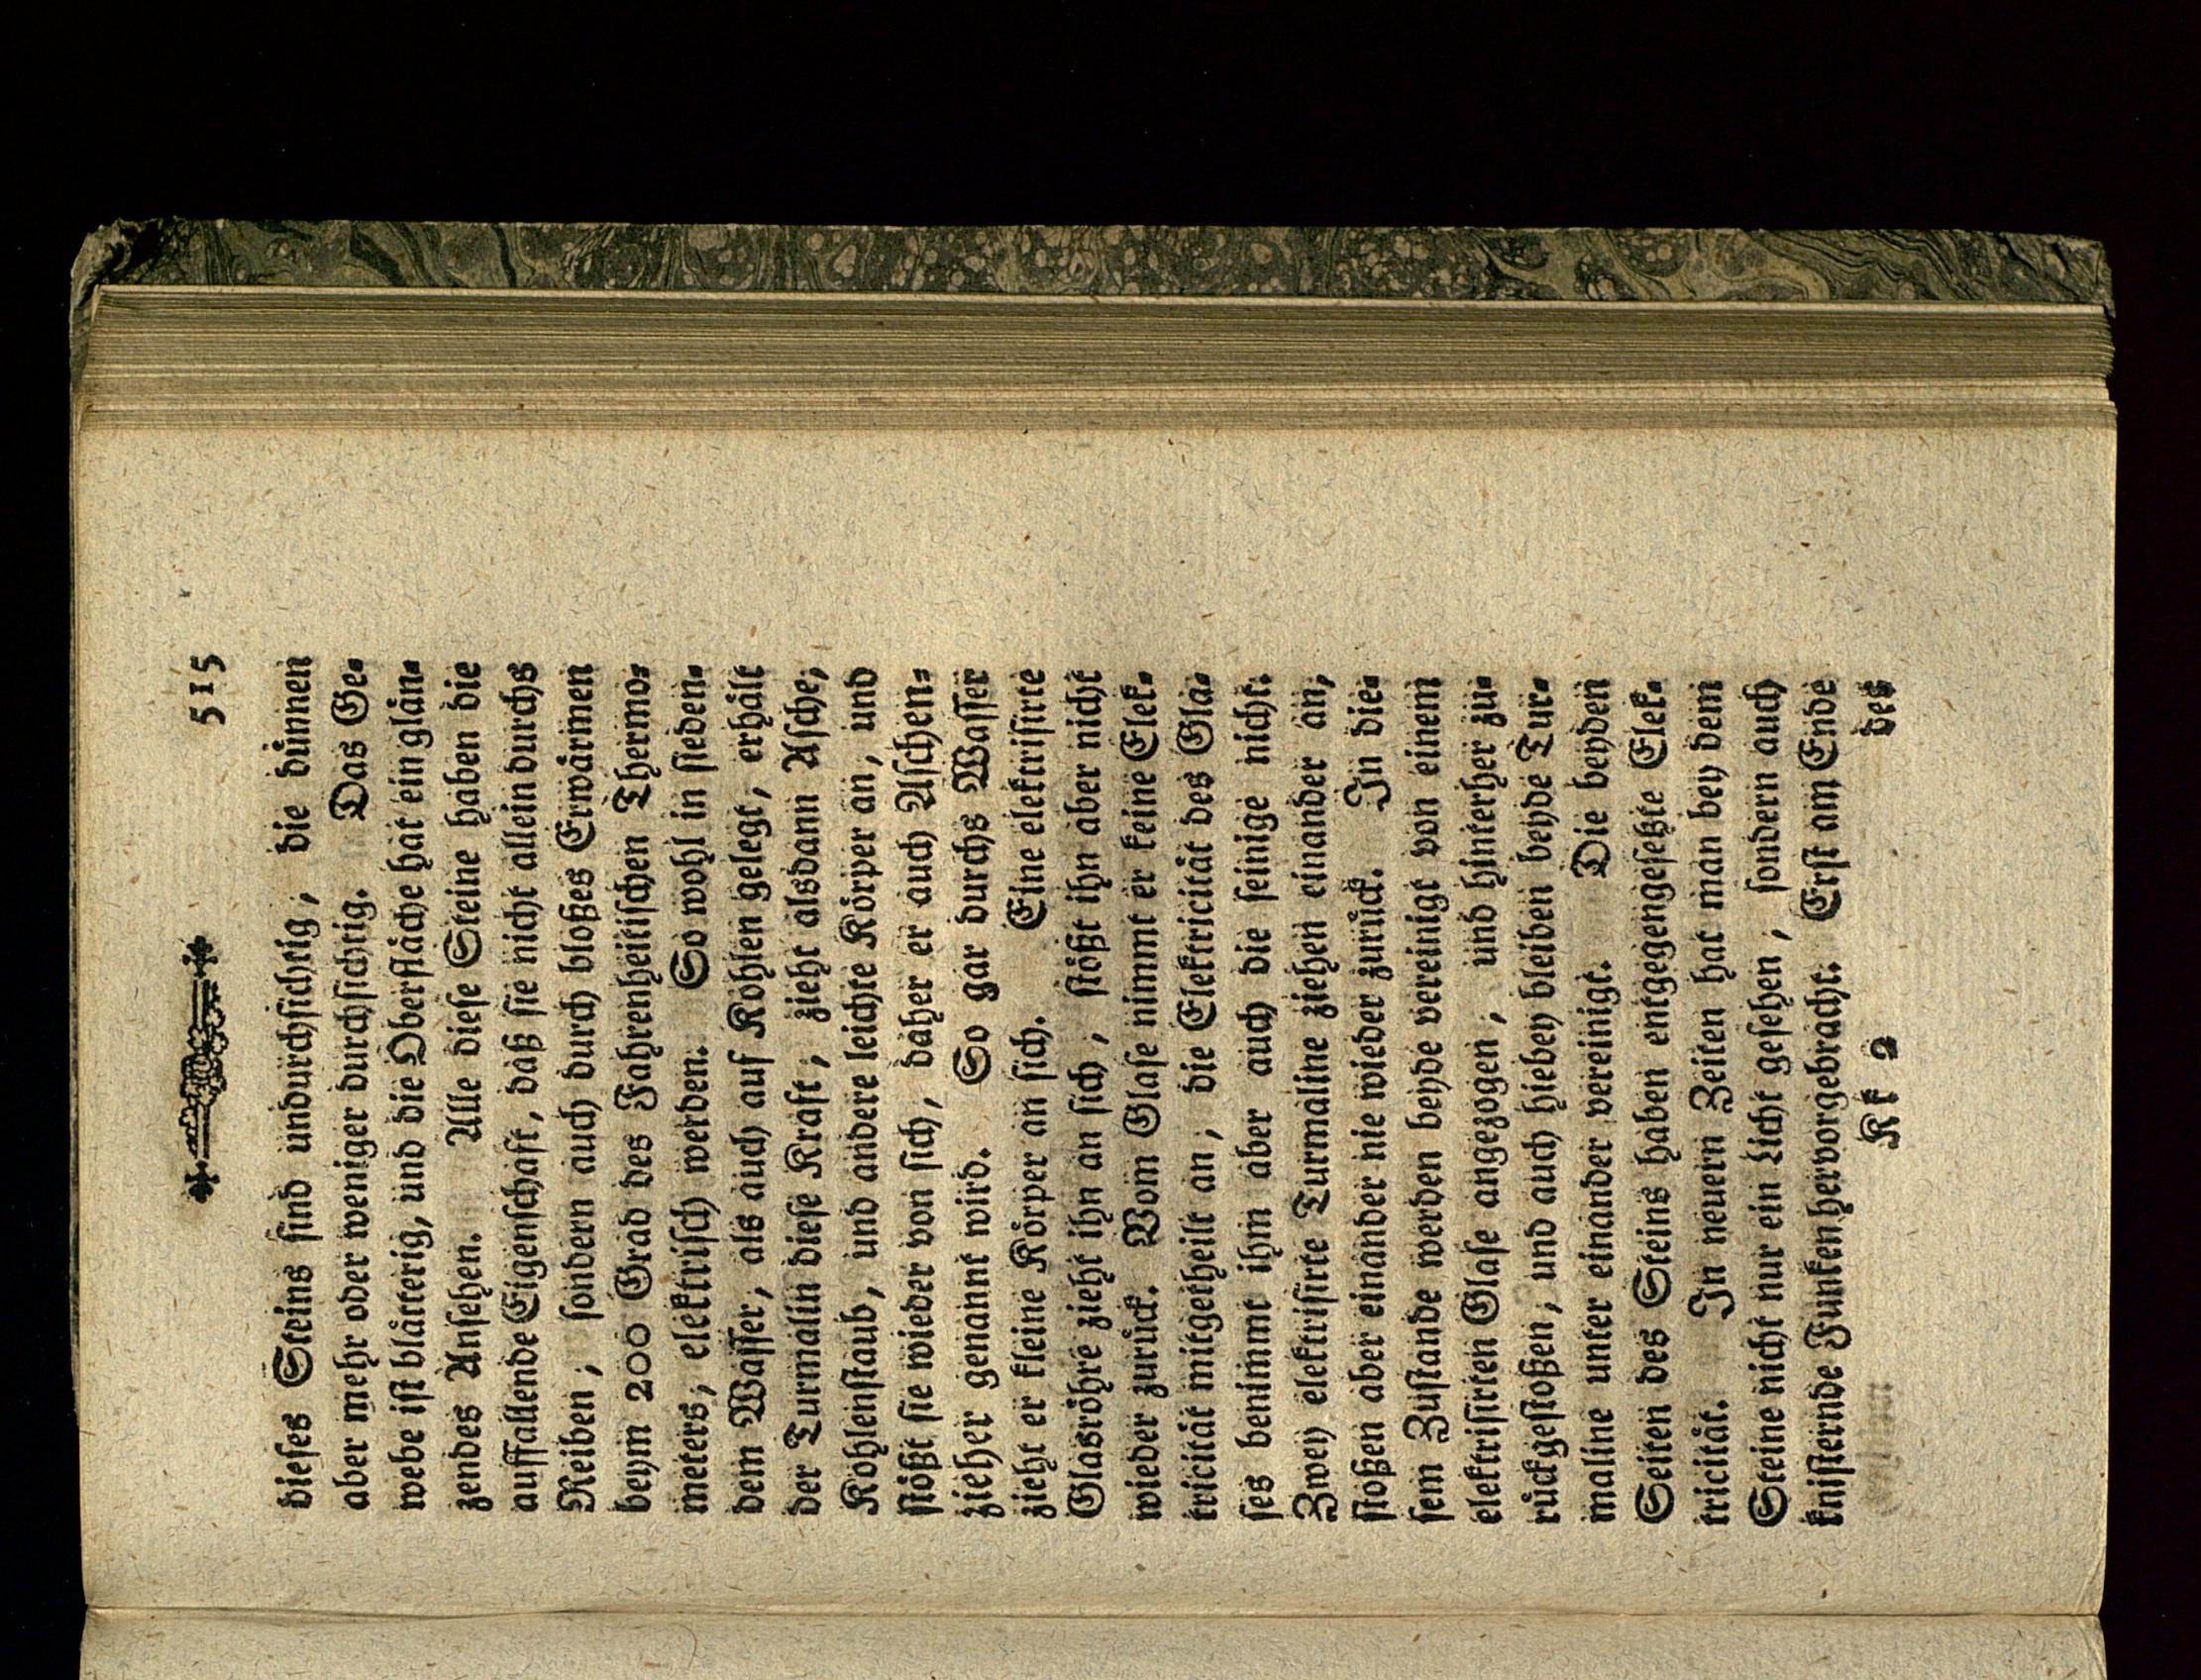 515
dieses Steins sind undurchsichtig, die dünnen
aber mehr oder weniger durchsichtig. Das Ge-
webe ist blätterig, und die Oberfläche hat ein glän-
zendes Ansehen. Alle diese Steine haben die
auffallende Eigenschaft, daß sie nicht allein durchs
Reiben, sondern auch durch bloßes Erwärmen
beym 200 Grad des Fahrenheitischen Thermo-
meters, elektrisch werden. So wohl in sieden-
dem Wasser, als auch auf Kohlen gelegt, erhält
der Turmalin diese Kraft, zieht alsdann Asche,
Kohlenstaub, und andere leichte Körper an, und
stößt sie wieder von sich, daher er auch Aschen-
zieher genannt wird. So gar durchs Wasser
zieht er kleine Körper an sich. Eine elektrisirte
Glasröhre zieht ihn an sich, stößt ihn aber nicht
wieder zurück. Vom Glase nimmt er keine Elek-
tricität mitgetheilt an, die Elektricität des Gla-
ses benimmt ihm aber auch die seinige nicht.
Zwey elektrisirte Turmaline ziehen einander an,
stoßen aber einander nie wieder zurück. In die-
sem Zustande werden beyde vereinigt von einem
elektrisirten Glase angezogen, und hinterher zu-
rückgestoßen, und auch hiebey bleiben beyde Tur-
maline unter einander vereinigt. Die beyden
Seiten des Steins haben entgegengesetzte Elek-
tricität. In neuern Zeiten hat man bey dem
Steine nicht nur ein Licht gesehen, sondern auch
knisternde Funken hervorgebracht. Erst am Ende
Kk 2 des